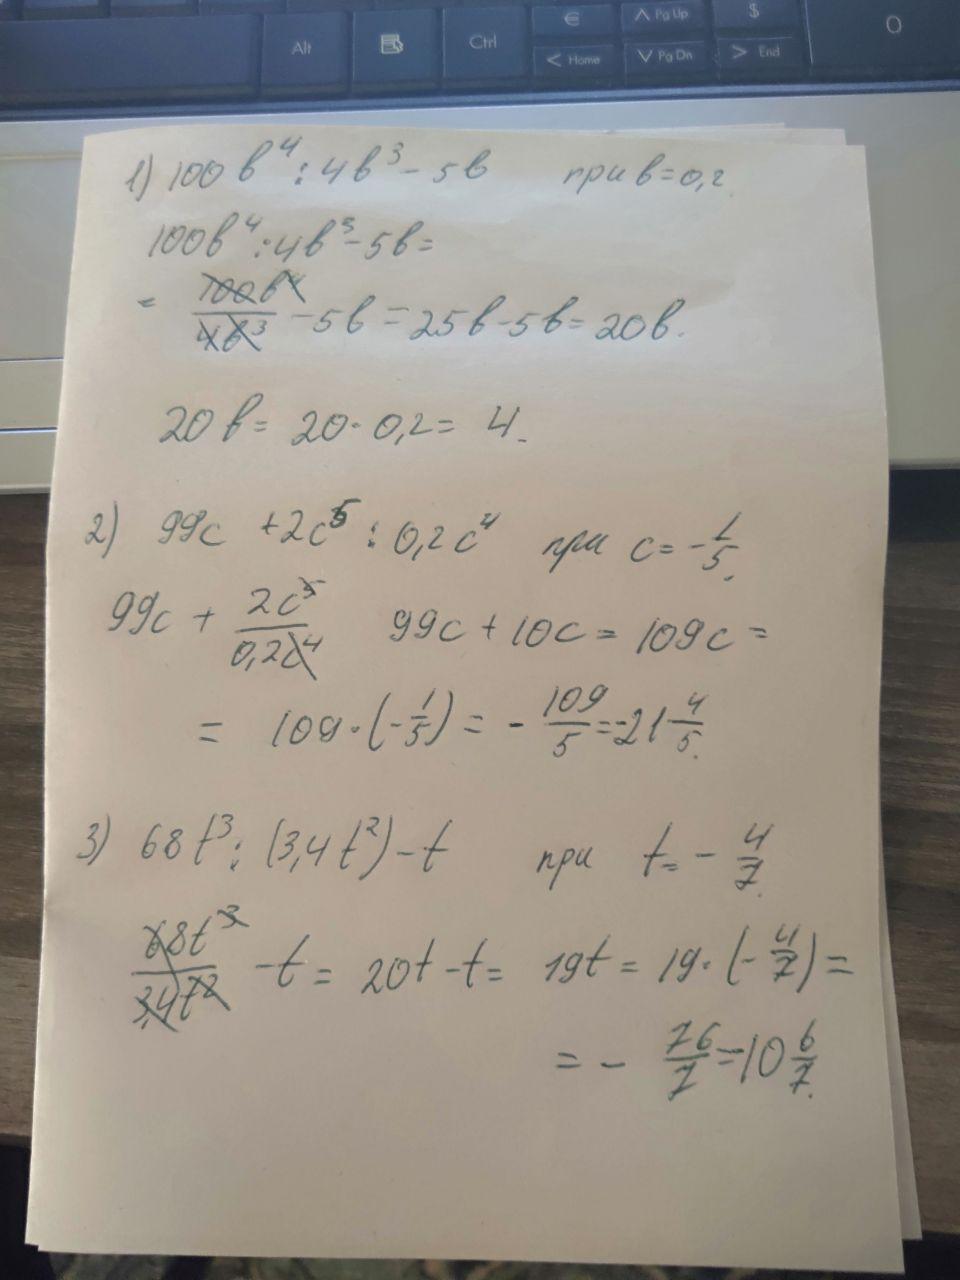 € ∧ Pg Up $
Alt Ctrl < Home ∨ Pg Dn > End O
1) 100 в⁴ : 4в³ – 5в при в = 0,2.
100в⁴ : 4в³ – 5в =
= 100в⁴/4в³ – 5в = 25в – 5в = 20в.
20в = 20 · 0,2 = 4.
2) 99с + 2с⁵ : 0,2с⁴ при с = –1/5.
99с + 2с⁵/0,2с⁴ 99с + 10с = 109с =
= 109 · (–1/5) = – 109/5 = –21 4/5.
3) 68t³ : (3,4t²) – t при t = – 4/7.
68t³/3,4t² – t = 20t – t = 19t = 19 · (–4/7) =
= – 76/7 = –10 6/7.